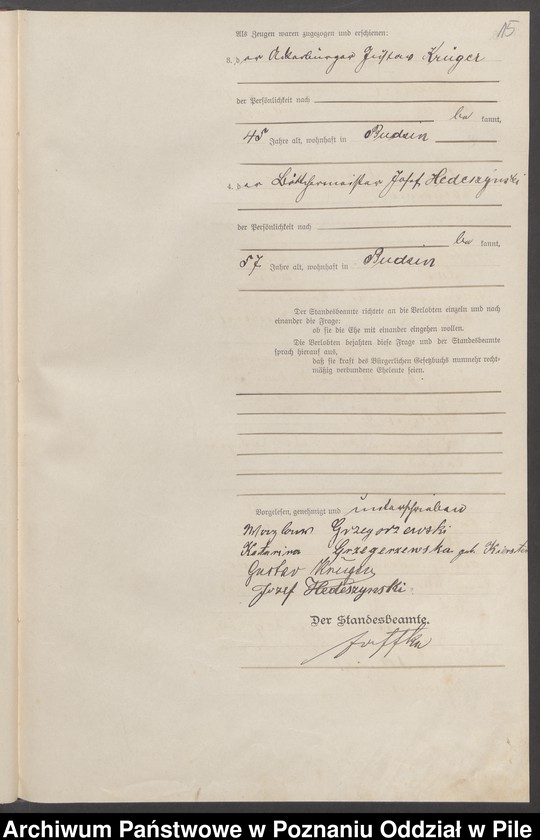 15
Als Zeugen waren zugezogen und erschienen:
3. der Ackerbürger Gustav Krüger
der Persönlichkeit nach
be kannt,
45 Jahre alt, wohnhaft in Budsin
4. der Böttchermeister Josef Hedeszynski
der Persönlichkeit nach
be kannt,
57 Jahre alt, wohnhaft in Budsin
Der Standesbeamte richtete an die Verlobten einzeln und nach
einander die Frage:
ob sie die Ehe mit einander eingehen wollen.
Die Verlobten bejahten diese Frage und der Standesbeamte
sprach hierauf aus,
daß sie kraft des Bürgerlichen Gesetzbuchs nunmehr recht-
mäßig verbundene Eheleute seien.
Vorgelesen, genehmigt und unterschrieben
Grzegorzewski
Katarina Grzegorzewska geb.
Gustav Krüger
Jozef Hedeszynski
Der Standesbeamte.
Archiwum Państwowe w Poznaniu Oddział w Pile